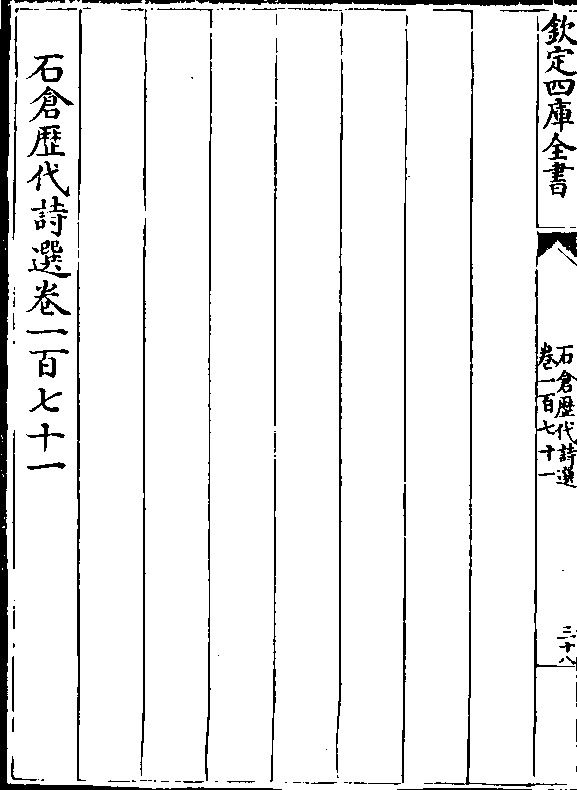 欽定四庫全書
石倉歷代詩選
卷一百七十一
三十八
石倉歷代詩選卷一百七十一